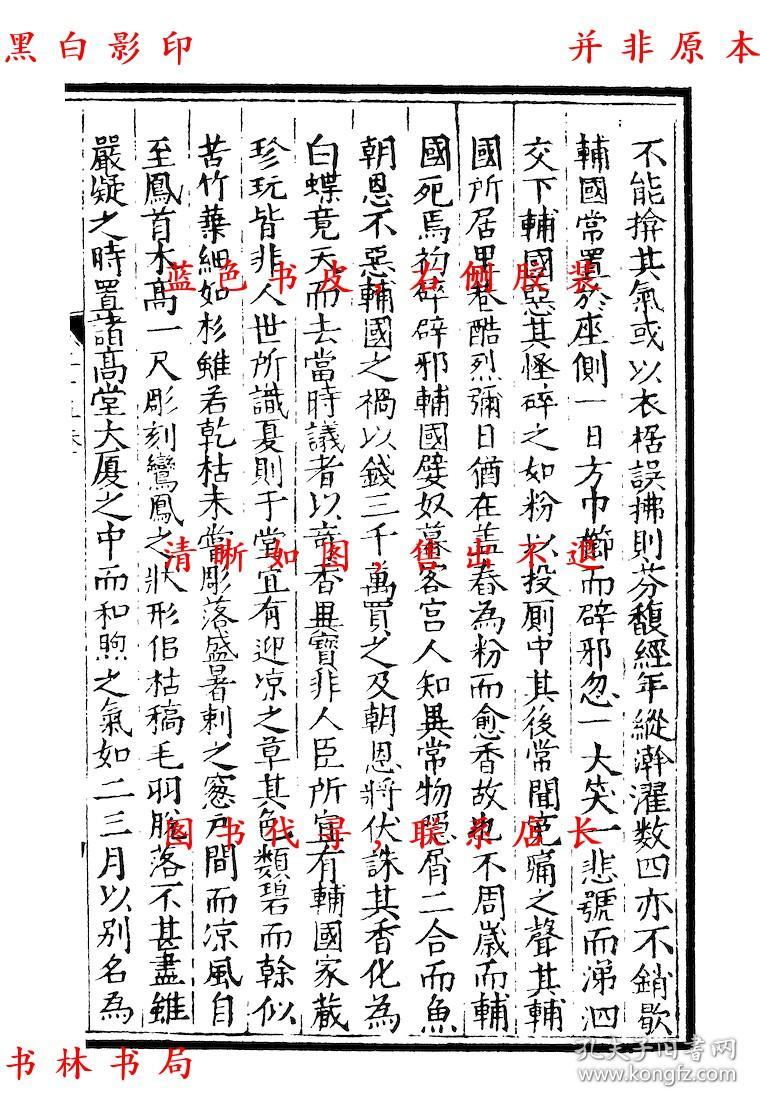 黑白影印
并非原本
不能揜其氣或以衣裾誤拂則芬馥經年縱澣濯数四亦不銷歇
輔國常置於座側一日方巾櫛而辟邪忽一大笑一悲號而涕泗
交下輔國惡其怪碎之如粉以投厠中其後常聞冤痛之聲其輔
國所居里巷酷烈彌日猶在蓋舂為粉而愈香故也不周歲而輔
國死焉初碎辟邪輔國嬖奴慕容宫人知異常物隠屑二合而魚
朝恩不惡輔國之禍以錢三千萬買之及朝恩將伏誅其香化為
白蝶竟天而去當時議者以竒香異寶非人臣所宜有輔國家蔵
珍玩皆非人世所識夏則于堂宜有迎凉之草其色類碧而榦似
苦竹葉細如杉雖若乾枯未嘗彫落盛暑刺之窓户間而凉風自
至鳳首木髙一尺彫刻鸞鳳之狀形佀枯稿毛羽脫落不甚盡雖
嚴疑之時置諸髙堂大厦之中而和煦之氣如二三月以别名為
蓝色书皮，右侧胶装
清晰如图，售出不退
图书代寻，联系店长
书林书局
孔夫子旧书网
www.kongfz.com